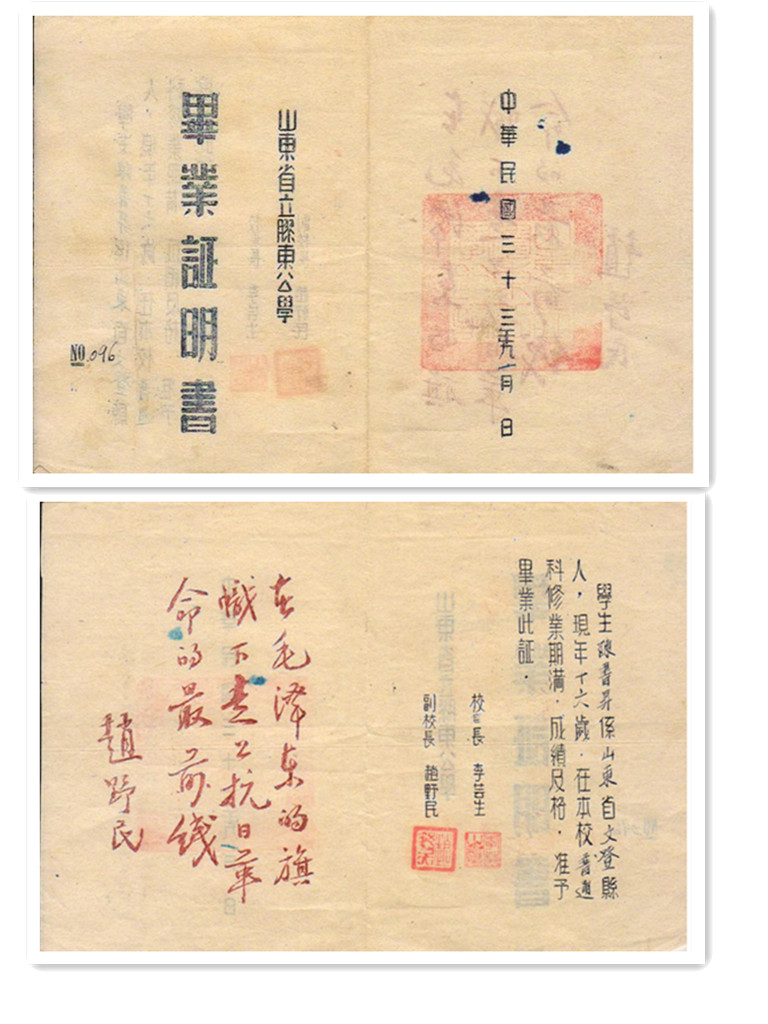 中華民國三十三年九月 日
山東省立膠東公學
畢業証明書
NO.096
學生陳書昇係山東省文登縣
人，現年十六歲．在本校普通
科修業期滿．成績及格．准予
畢業此証．
校長 李芸生
副校長 趙野民
在毛泽东的旗
幟下走上抗日革
命的最前线
趙野民